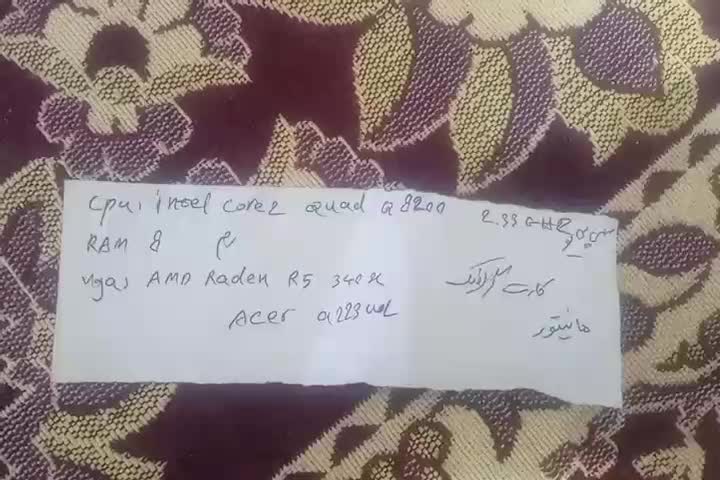 cpu: intel core2 quad Q8200 2.33 GHZ سی پی یو
RAM 8 رم
vga: AMD Raden R5 340x کارت گرافیک
Acer مانیتور